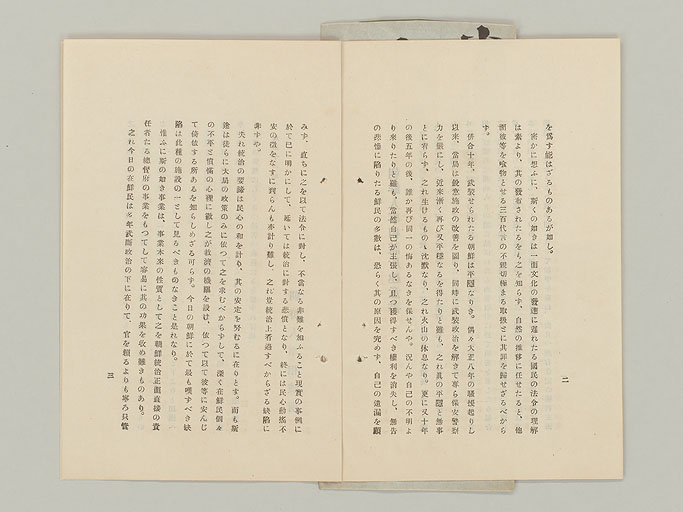 を爲す能はざるものあるが如し。
密かに想ふに、斯くの如きは一面文化の發達に遲れたる國民の法令の理解
は素より、其の發布されたるをも之を知らず、自然の推移に任せたると、他
面彼等を喰物とせる三百代言の不親切極まる取扱さに其罪を歸せざるべから
ず。
併合十年、武裝せられたる朝鮮は平穩なりき。偶々大正八年の騷擾起りし
以來、當局は鋭意施政の改善を圖り、同時に武裝政治を解きて專ら保安警察
力を嚴にし、近來漸く再び又平穩なるを得たりと雖も、之れ眞の平穩と無事
とに有らず、之れ生けるものゝ沈默なり、之れ火山の休息なり。更に又十年
の後五年の後、誰か再び同一の悔あるなきを保せんや。況んや自己の不明よ
り來りたりと雖も、當然自己が主張し、且つ獲得すべき權利を消失し、無告
の悲慘に陷りたる鮮民の多數は、恐らく其の原因を究めず、自己の遺漏を顧
二
みず、直ちに之を以て法令に對し、不當なる非難を加ふること現實の事例に
於て已に明かにして、延いては統治に對する悲憤となり、終には民心動搖不
安の徴をなすに到らんも牽計り難し、之れ豈統治上看過すべからざる缺陷に
非ずや。
夫れ統治の要諦は民心の和を計り、其の安定を努むるに在りとす。而も斯
途は徒らに大局の政策のみに依つて之を求むべからずして、深く在鮮民個々
の不平と憤懣の心裡に徹し之が救濟の機關を設け、依つて以て彼等に安んじ
て倚依する所あるを知らしめざる可らず。今日の朝鮮に於て最も嘆すべき缺
陷は此種の施設の一として見るべきものなきこと是れなり。
惟ふに斯の如き事業は、事業本來の性質として之を朝鮮統治正面直接の責
任者たる總督府の事業をもつてして容易に其の功果を收め難きものあり。
之れ今日の在鮮民は多年武斷政治の下に在りて、官を賴るよりも寧ろ只管
三